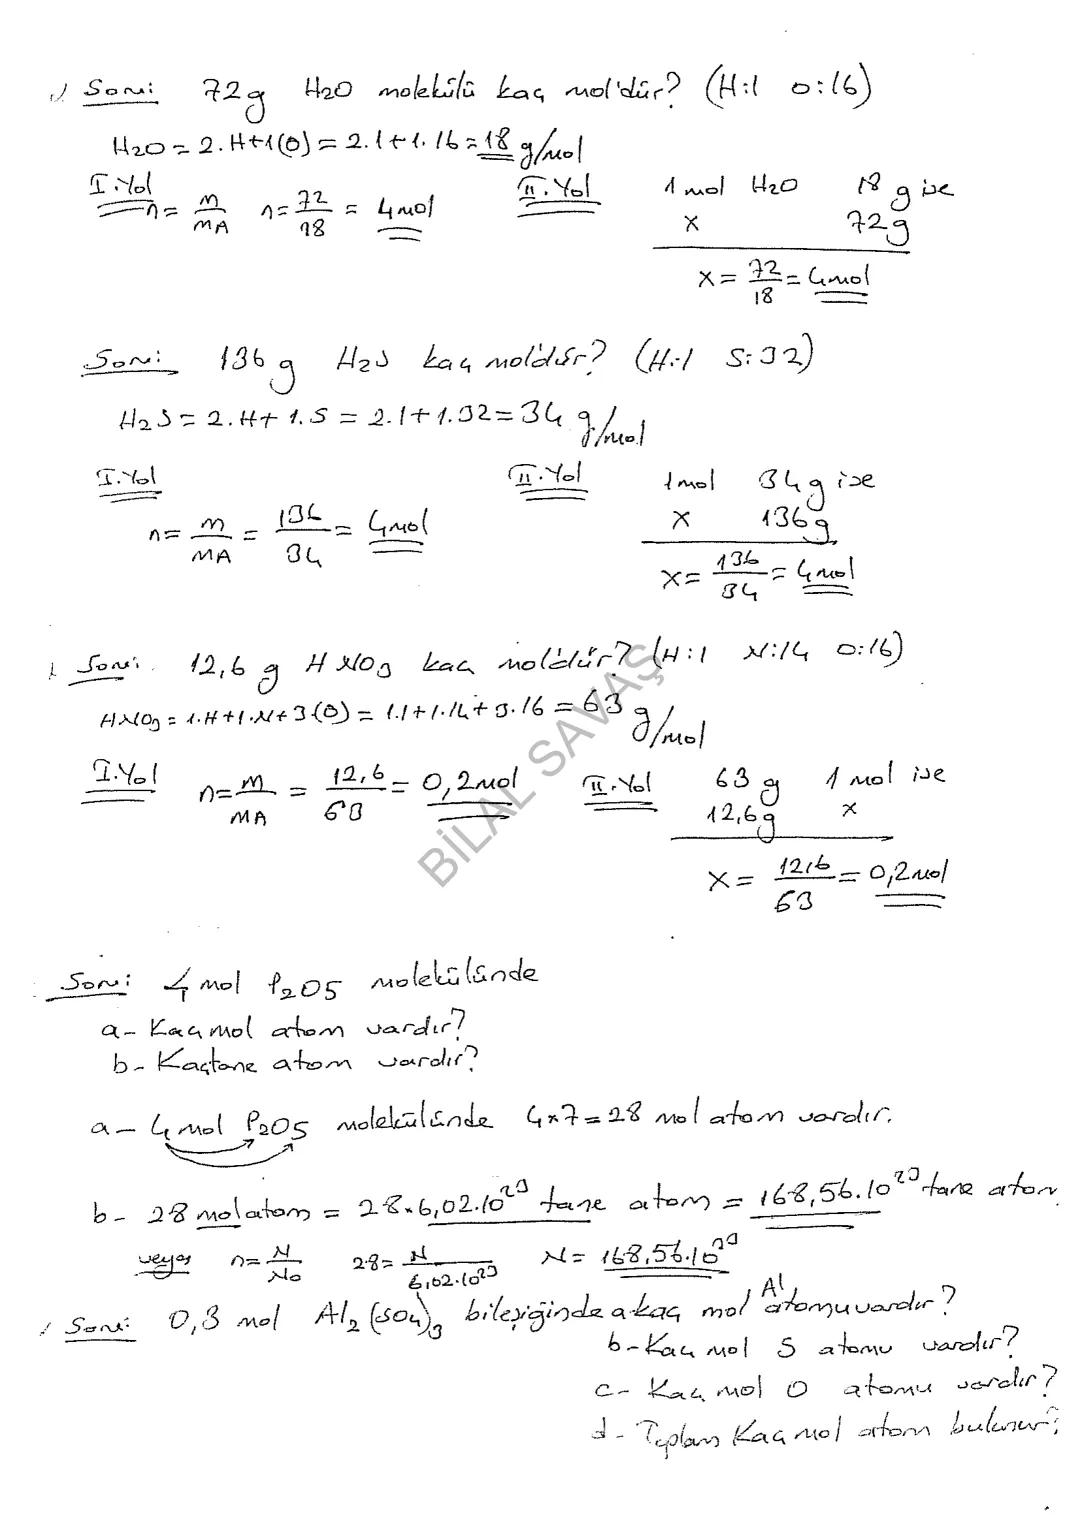 Soru: 72g H2O molekülü kaç mol'dür? (H:1 O:16)
H2O = 2.H+1(O) = 2.1+1.16 = 18 g/mol
I.Yol
n= m/MA n= 72/18 = 4mol
II.Yol
1 mol H2O 18 g ise
x 72g
x = 72/18 = 4mol
Soru: 136 g H2S kaç mol'dür? (H:1 S:32)
H2S = 2.H+ 1.S = 2.1+1.32 = 34 g/mol
I.Yol
n= m/MA = 136/34 = 4mol
II.Yol
1mol 34g ise
x 136g
x= 136/34 = 4mol
Soru: 12,6 g HNO3 kaç mol'dür? (H:1 N:14 O:16)
HNO3 = 1.H+1.N+3(O) = 1.1+1.14+3.16 = 63 g/mol
I.Yol n= m/MA = 12,6/63 = 0,2mol
II.Yol 63 g 1 mol ise
12,6g x
x = 12,6/63 = 0,2mol
BİLAL SAVAŞ
Soru: 4 mol P2O5 molekülünde
a- Kaç mol atom vardır?
b- Kaç tane atom vardır?
a- 4 mol P2O5 molekülünde 4x7=28 mol atom vardır.
b- 28 mol atom = 28.6,02.10^23 tane atom = 168,56.10^23 tane atom
veya n= N/No 28= N/6,02.10^23 N= 168,56.10^23
Soru: 0,3 mol Al2(SO4)3 bileşiğinde a-kaç mol Al atomu vardır?
b-Kaç mol S atomu vardır?
c- Kaç mol O atomu vardır?
d- Toplam Kaç mol atom bulunur?